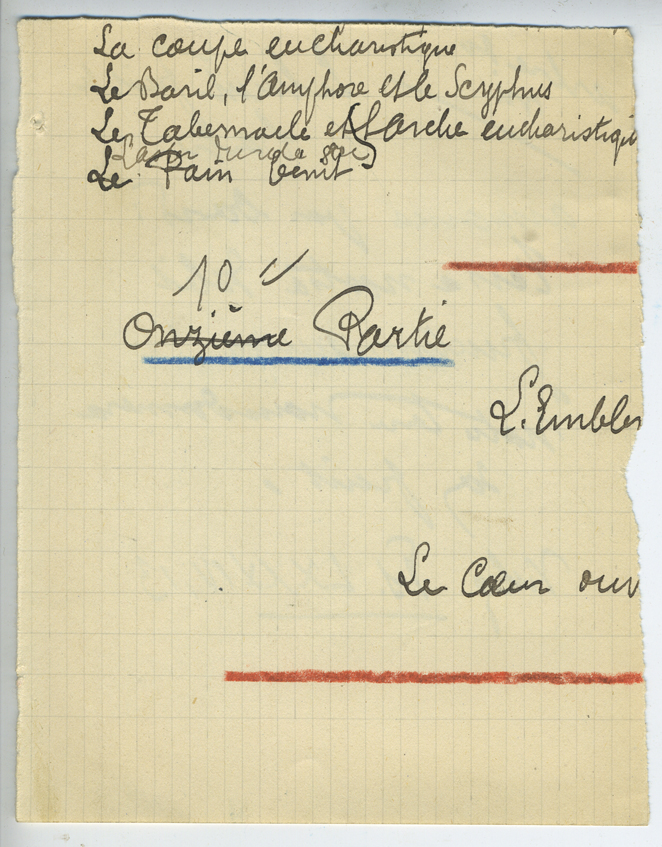 La coupe eucharistique
Le Baril, l'Amphore et le Scyphus
Le Tabernacle et l'Arche eucharistiqu
Le Pain bénit
10e
Onzième Partie
L'Emblem
Le Cœur ouv